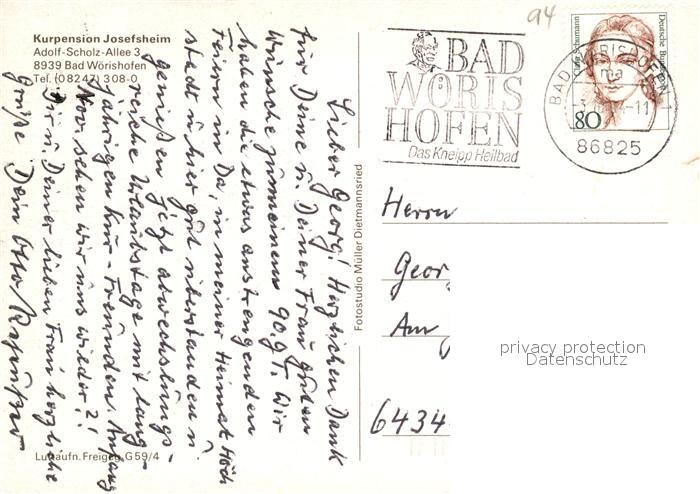 Kurpension Josefsheim
Adolf-Scholz-Allee 3
8939 Bad Wörishofen
Tel. (08247) 308-0
Lieber Georg! Herzlichen Dank
für Deine u. Deiner Frau guten
Wünsche zu meinem 90. G.T. Wir
haben die etwas anstrengenden
Feiern in Da, in meiner Heimat Höch
stadt u. hier gut überstanden u.
genießen jetzt abwechslungs-
reiche Urlaubstage mit lang-
jährigen Kur-Freunden. Anfang
sehen wir uns wieder?!
Dir u. Deiner lieben Frau herzliche
Grüße Dein Otto
Luftaufn. Freigeg. G 59/4
Fotostudio Müller Dietmannsried
94
BAD
WÖRIS
HOFEN
Das Kneipp Heilbad
BAD WÖRISHOFEN
ma
-11
86825
Clara Schumann
Deutsche Bundespost
80
Herrn
Geor
Am
6434
privacy protection
Datenschutz